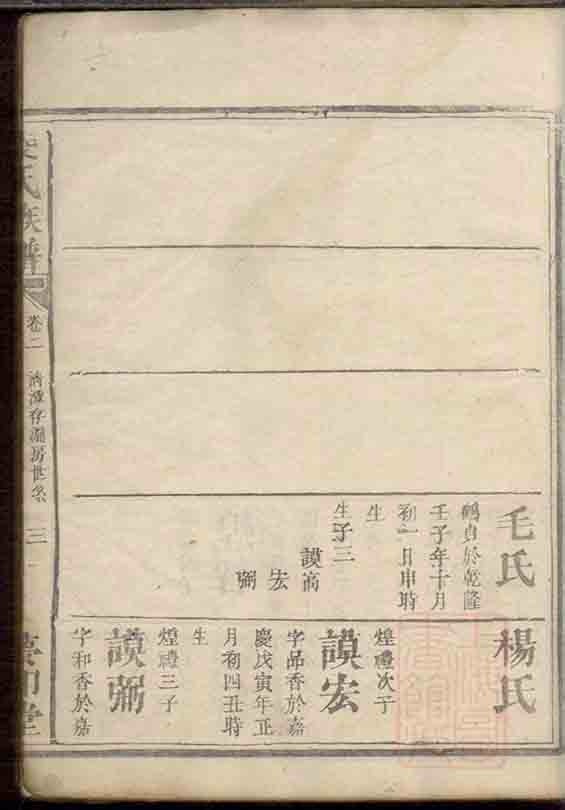 毛氏
鶴貞於乾隆
壬子年十月
初一日申時
生
生子三
謨高
宏
弼
楊氏
煌禮次子
謨宏
字品香於嘉
慶戊寅年正
月初四丑時
生
煌禮三子
謨弼
字和香於嘉
氏族譜
卷二
房世系
三
堂